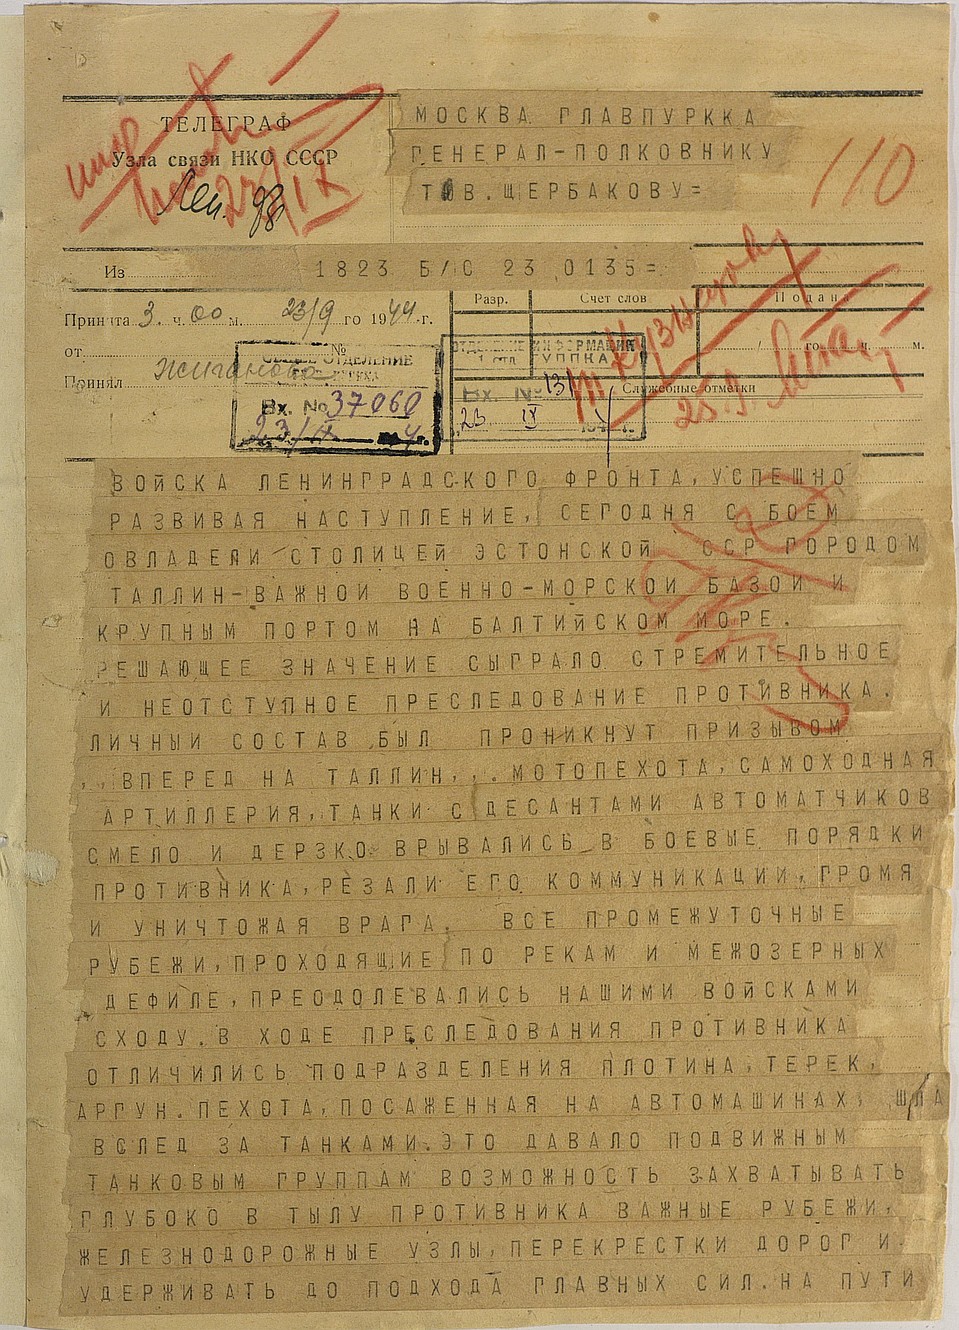 ТЕЛЕГРАФ
Узла связи НКО СССР
Лен. 98
МОСКВА ГЛАВПУРККА
ГЕНЕРАЛ-ПОЛКОВНИКУ
ТОВ.ЩЕРБАКОВУ=
110
Из 1823 Б/С 23 0135=
Принята 3 ч. 00 м. 23/9 го 1944 г.
от
Принял Жиганова
Разр. Счет слов Подана
го ч. м.
Служебные отметки
№
ОБЩЕЕ ОТДЕЛЕНИЕ
Вх. № 37060
23/IX 4
ОТДЕЛЕНИЕ ИНФОРМАЦИИ
Вх. № 131
23 IX
ВОЙСКА ЛЕНИНГРАДСКОГО ФРОНТА, УСПЕШНО
РАЗВИВАЯ НАСТУПЛЕНИЕ, СЕГОДНЯ С БОЕМ
ОВЛАДЕЛИ СТОЛИЦЕЙ ЭСТОНСКОЙ ССР ГОРОДОМ
ТАЛЛИН-ВАЖНОЙ ВОЕННО-МОРСКОЙ БАЗОЙ И
КРУПНЫМ ПОРТОМ НА БАЛТИЙСКОМ МОРЕ.
РЕШАЮЩЕЕ ЗНАЧЕНИЕ СЫГРАЛО СТРЕМИТЕЛЬНОЕ
И НЕОТСТУПНОЕ ПРЕСЛЕДОВАНИЕ ПРОТИВНИКА.
ЛИЧНЫЙ СОСТАВ БЫЛ ПРОНИКНУТ ПРИЗЫВОМ
,,ВПЕРЕД НА ТАЛЛИН,,.МОТОПЕХОТА,САМОХОДНАЯ
АРТИЛЛЕРИЯ,ТАНКИ С ДЕСАНТАМИ АВТОМАТЧИКОВ
СМЕЛО И ДЕРЗКО ВРЫВАЛИСЬ В БОЕВЫЕ ПОРЯДКИ
ПРОТИВНИКА,РЕЗАЛИ ЕГО КОММУНИКАЦИИ,ГРОМЯ
И УНИЧТОЖАЯ ВРАГА. ВСЕ ПРОМЕЖУТОЧНЫЕ
РУБЕЖИ,ПРОХОДЯЩИЕ ПО РЕКАМ И МЕЖОЗЕРНЫХ
ДЕФИЛЕ,ПРЕОДОЛЕВАЛИСЬ НАШИМИ ВОЙСКАМИ
СХОДУ.В ХОДЕ ПРЕСЛЕДОВАНИЯ ПРОТИВНИКА
ОТЛИЧИЛИСЬ ПОДРАЗДЕЛЕНИЯ ПЛОТИНА,ТЕРЕК,
АРГУН.ПЕХОТА,ПОСАЖЕННАЯ НА АВТОМАШИНАХ, ШЛА
ВСЛЕД ЗА ТАНКАМИ.ЭТО ДАВАЛО ПОДВИЖНЫМ
ТАНКОВЫМ ГРУППАМ ВОЗМОЖНОСТЬ ЗАХВАТЫВАТЬ
ГЛУБОКО В ТЫЛУ ПРОТИВНИКА ВАЖНЫЕ РУБЕЖИ,
ЖЕЛЕЗНОДОРОЖНЫЕ УЗЛЫ,ПЕРЕКРЕСТКИ ДОРОГ И
УДЕРЖИВАТЬ ДО ПОДХОДА ГЛАВНЫХ СИЛ.НА ПУТИ